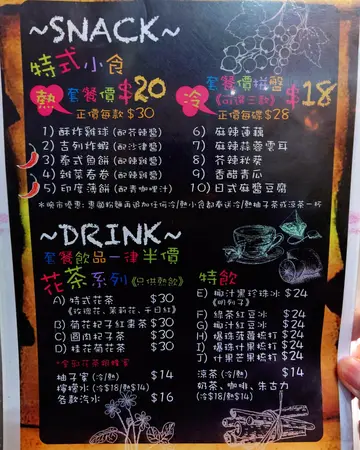 ~SNACK~
特式小食
熱 套餐價 $20
正價每款 $30
冷 套餐價拼盤 $18
《可選三款》
正價每碟 $28
1) 酥炸雞球 (配芥辣醬)
2) 吉列炸蝦 (配沙律醬)
3) 泰式魚餅 (配雞辣醬)
4) 雜菜春卷 (配雞辣醬)
5) 印度薄餅 (配青咖喱汁)
6) 麻辣蓮藕
7) 麻辣蒜蓉雲耳
8) 芥辣秋葵
9) 香醋青瓜
10) 日式麻醬豆腐
~DRINK~
套餐飲品一律半價
花茶系列《只供熱飲》
A) 特式花茶 $30
《玫瑰花、茉莉花、千日紅》
B) 菊花杞子紅棗茶 $30
C) 圓肉杞子茶 $30
D) 桂花菊花茶 $30
柚子蜜 (冷/熱) $14
檸撈水 (冷$18/熱$14)
各款汽水 $16
特飲
E) 椰汁黑珍珠冰 $24
《明列子》
F) 綠茶紅豆冰 $24
G) 椰汁紅豆冰 $24
H) 爆珠菠蘿梳打 $24
I) 爆珠什菓梳打 $24
J) 什果芒果梳打 $24
涼茶 (冷/熱) $14
奶茶、咖啡、朱古力
(冷$18/熱$14)